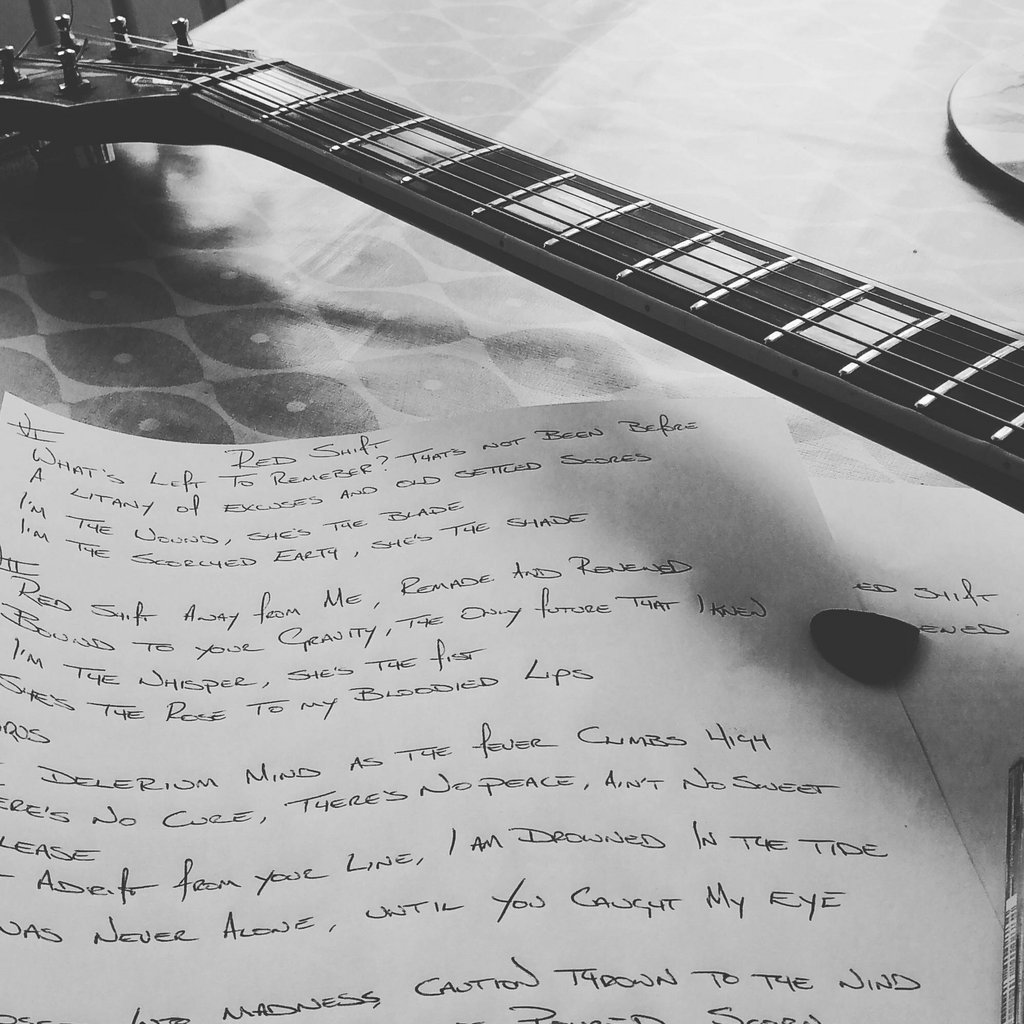 II
RED SHIFT
WHAT'S LEFT TO REMEBER? THATS NOT BEEN BEFORE
A LITANY OF EXCUSES AND OLD SETTLED SCORES
I'M THE WOUND, SHE'S THE BLADE
I'M THE SCORCHED EARTH, SHE'S THE SHADE
III
RED SHIFT AWAY FROM ME, REMADE AND RENEWED
BOUND TO YOUR GRAVITY, THE ONLY FUTURE THAT I KNEW
I'M THE WHISPER, SHE'S THE FIST
SHE'S THE ROSE TO MY BLOODIED LIPS
ED SHIFT
ENED
ORDS
DELERIUM MIND AS THE FEVER CLIMBS HIGH
ERE'S NO CURE, THERE'S NO PEACE, AIN'T NO SWEET
LEASE
ADRIFT FROM YOUR LINE, I AM DROWNED IN THE TIDE
WAS NEVER ALONE, UNTIL YOU CAUGHT MY EYE
INTO MADNESS, CAUTION THROWN TO THE WIND
SCORN